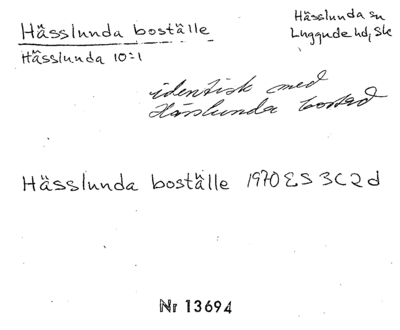 Hässlunda boställe
Hässlunda sn
Luggude hd, Sk
Hässlunda 10:1
identisk med
Hässlunda bostad
Hässlunda boställe 1970 ES 3C2d
Nr 13694